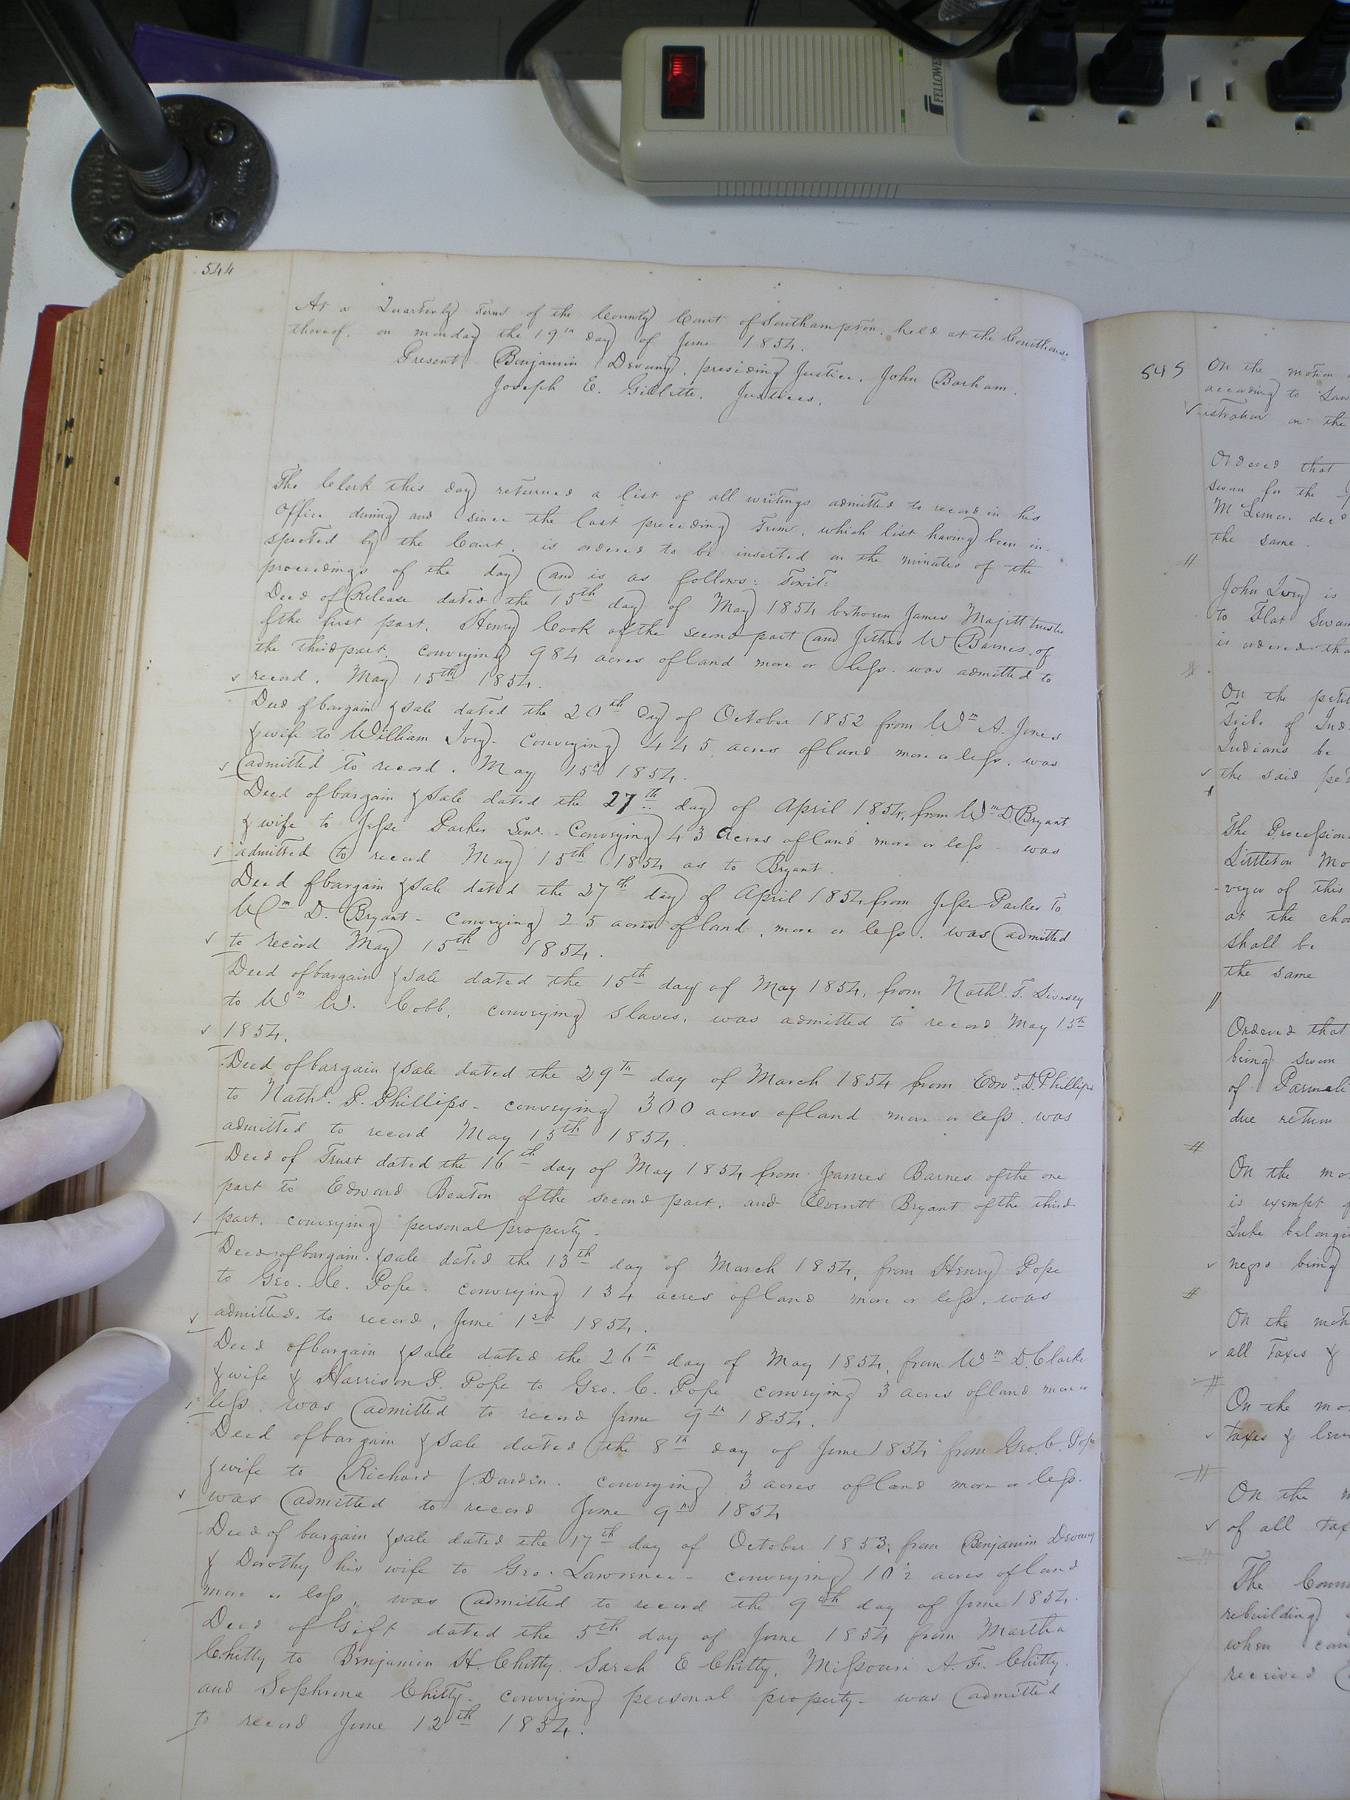 FELLOWES
544
At a Quarterly Term of the County Court of Southampton, held at the Courthouse
thereof on monday the 19th day of June 1854.
Present, Benjamin Devany, presiding Justice, John Barham.
Joseph E. Gillette, Justices.
The Clerk this day returned a list of all writings admitted to record in his
Office during and since the last preceeding Term, which list having been in-
spected by the Court, is ordered to be inserted on the minutes of the
proceedings of the day and is as follows: Towit:
Deed of Release dated the 15th day of May 1854 between James Magett trustee
of the first part, Henry Cook of the second part and Jethro W Barnes, of
the third part, conveying 984 acres of land more or less. was admitted to
record, May 15th 1854.
Deed of bargain & sale dated the 20th day of October 1852 from Wm A. Jones
& wife to William Ivey. conveying 445 acres of land more or less, was
admitted to record, May 15th 1854.
Deed of bargain & sale dated the 27th day of April 1854, from Wm D Bryant
& wife to Jesse Parker Senr. Conveying 43 acres of land more or less was
admitted to record May 15th 1854 as to Bryant.
Deed of bargain & sale dated the 27th day of April 1854 from Jesse Parker to
Wm D. Bryant - conveying 25 acres of land, more or less. was admitted
to record May 15th 1854.
Deed of bargain & sale dated the 15th day of May 1854, from Nathl. T.
to Wm W. Cobb, conveying slaves, was admitted to record May 15th
1854.
Deed of bargain & sale dated the 29th day of March 1854 from Edwd. D. Phillips
to Nathl. P. Phillips - conveying 300 acres of land more or less was
admitted to record May 15th 1854.
Deed of Trust dated the 16th day of May 1854 from James Barnes of the one
part to Edward Beaton of the second part, and Everett Bryant of the third
part, conveying personal property.
Deed of bargain & sale dated the 13th day of March 1854, from Henry Pope
to Geo. C. Pope. conveying 134 acres of land more or less, was
admitted to record, June 1st 1854.
Deed of bargain & sale dated the 26th day of May 1854, from Wm D. Clarke
& wife & Harrison P. Pope to Geo. C. Pope conveying 3 acres of land more or
less. was admitted to record June 9th 1854.
Deed of bargain & sale dated the 8th day of June 1854 from Geo. C. Pope
& wife to Richard J. Darden. conveying 3 acres of land more or less.
was admitted to record June 9th 1854
Deed of bargain & sale dated the 17th day of October 1853, from Benjamin Devany
& Dorothy his wife to Geo. Lawrence - conveying acres of land
more or less, was admitted to record the 9th day of June 1854.
Deed of Gift dated the 5th day of June 1854 from Martha
Chitty to Benjamin H. Chitty, Sarah E Chitty, Missouri A. F. Chitty
and Sophrona Chitty. conveying personal property - was admitted
to record June 12th 1854.
545
On the motion
according to Law
istration on the
Ordered that
swan for the
the same.
John Ivey is
to Flat Swam
is ordered tha
On the peti
Tribe of Ind
Indians be
the said pe
The Procession
Littleton Mo
veyor of this
at the cho
shall be
the same
Ordered that
being sworn
of
due return
On the mo
is exempt
Luke belongi
negro being
On the moti
all Taxes &
On the mo
taxes & lev
On the m
of all tax
The Comm
rebuilding
when
received